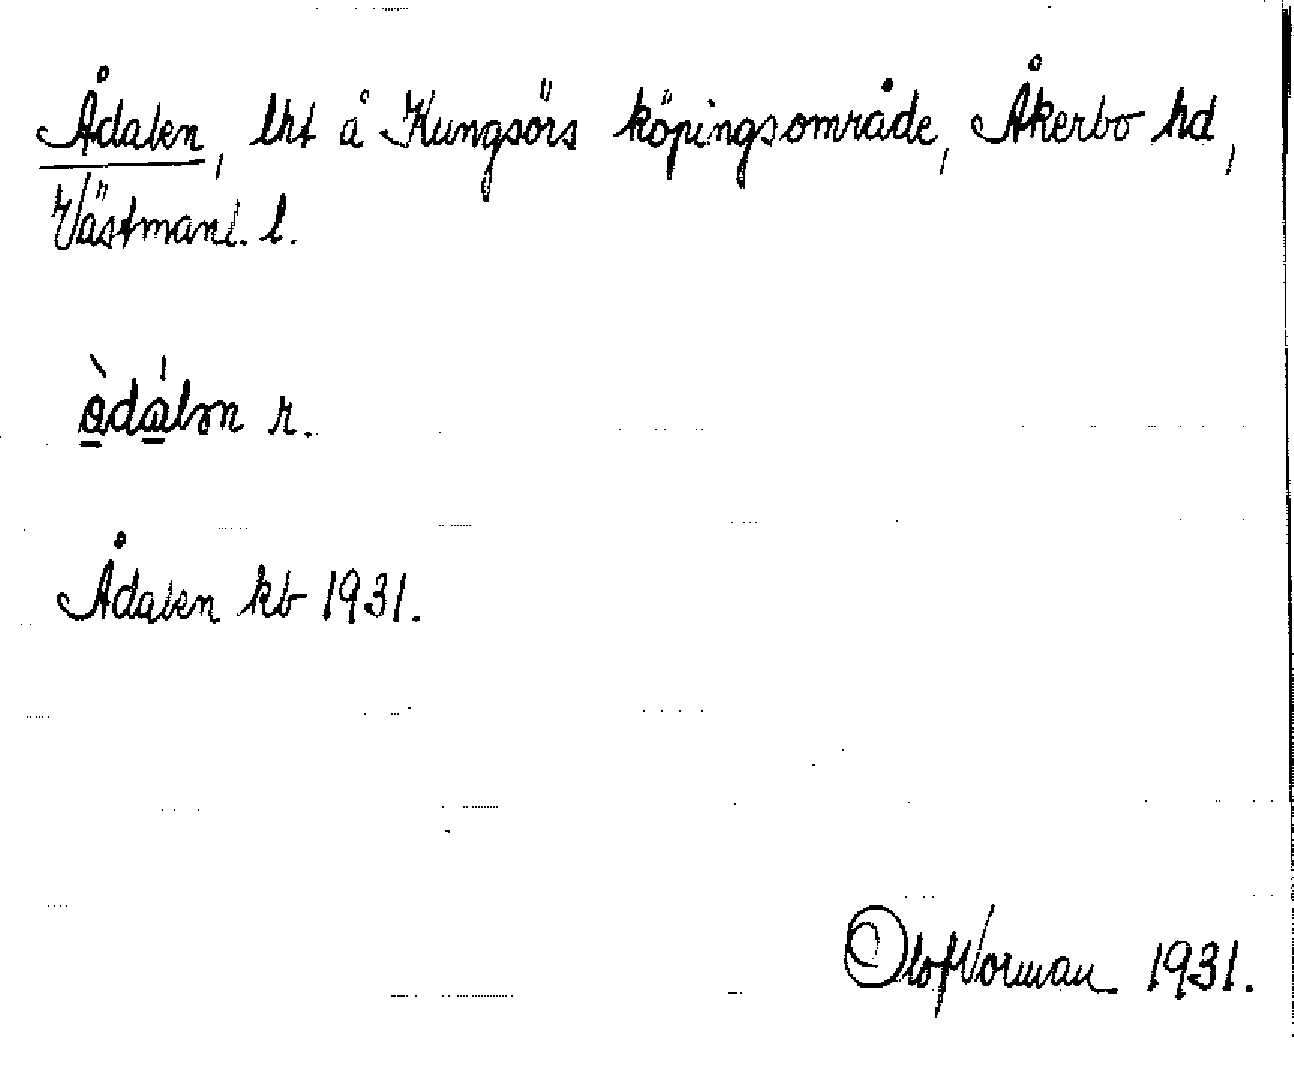 Ådalen, lht å Kungsörs köpingsområde, Åkerbo hd,
Västmanl. l.
å̀dálən r.
Ådalen kb 1931.
Olof Norman 1931.